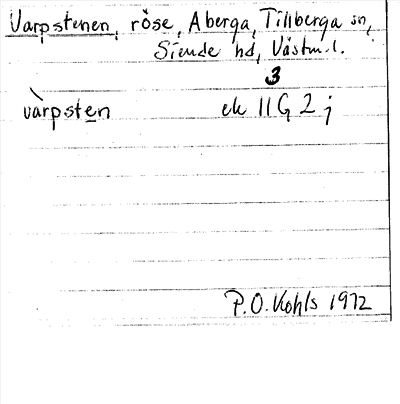 Varpstenen, röse, Åberga, Tillberga sn,
Siende hd, Västm. l.
3
vàrpsten ek 11G 2j
P.O. Kohls 1972